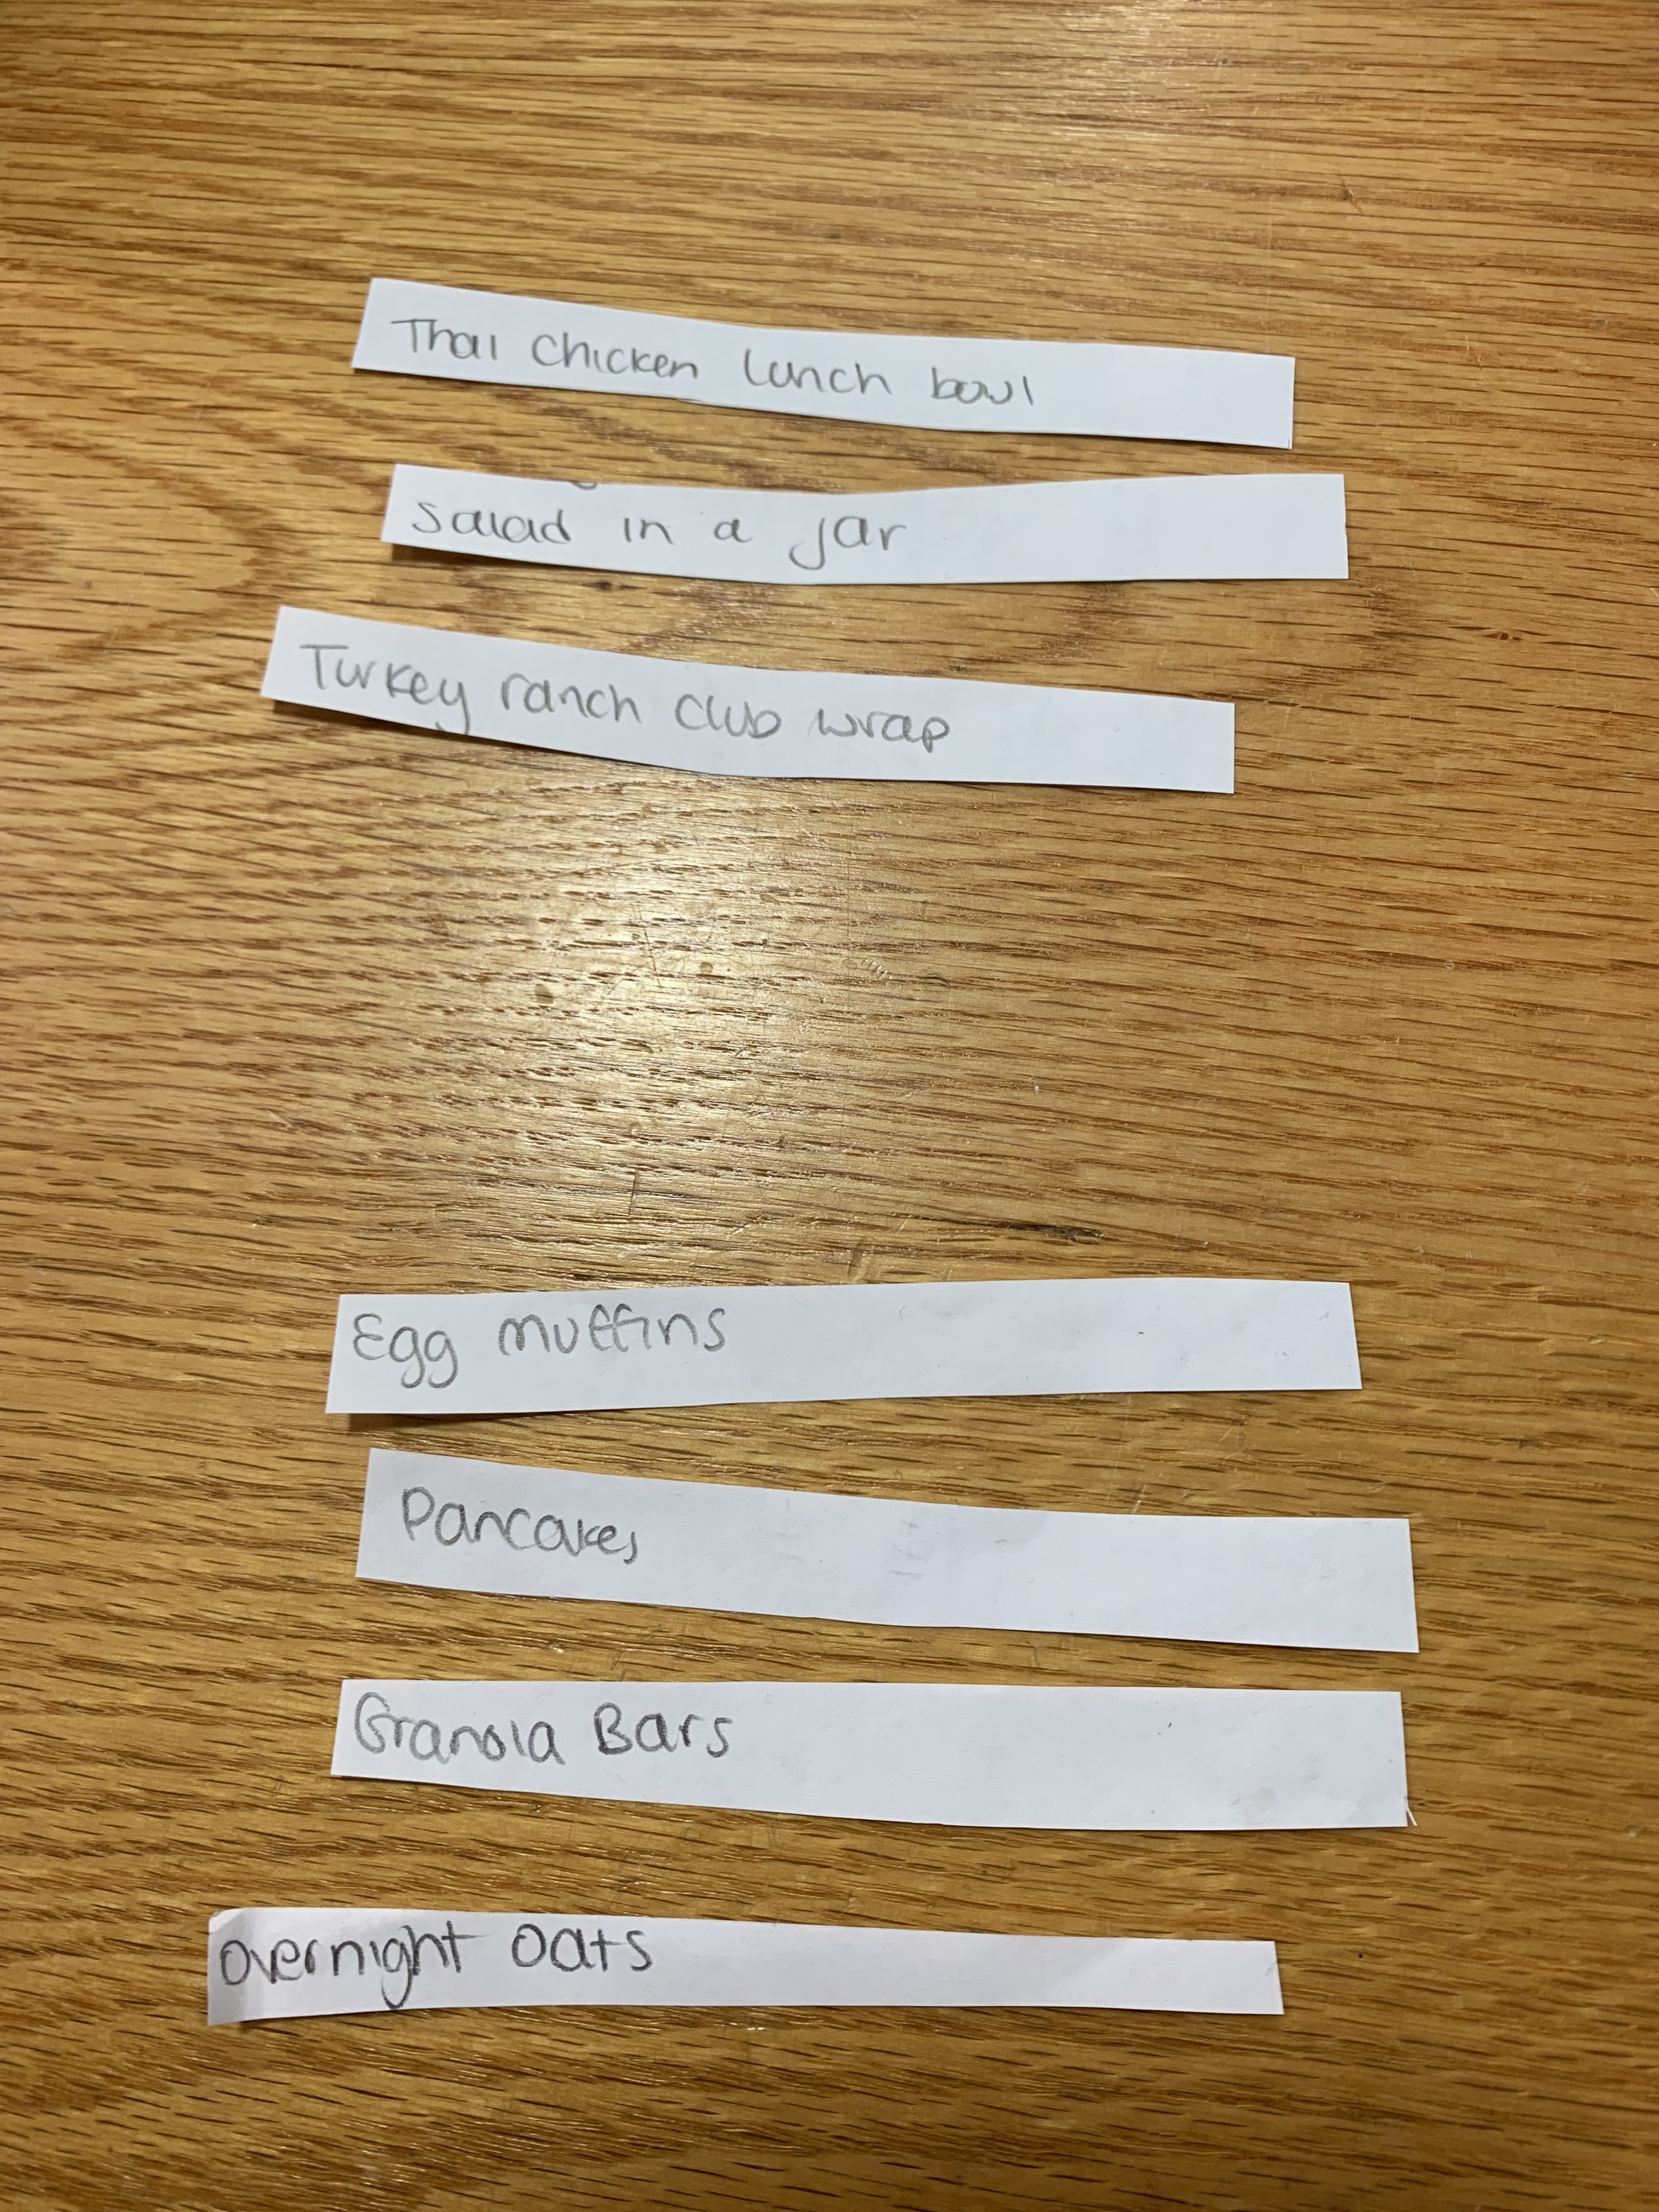 Thai chicken lunch bowl
salad in a jar
Turkey ranch club wrap
Egg muffins
Pancakes
Granola Bars
overnight oats